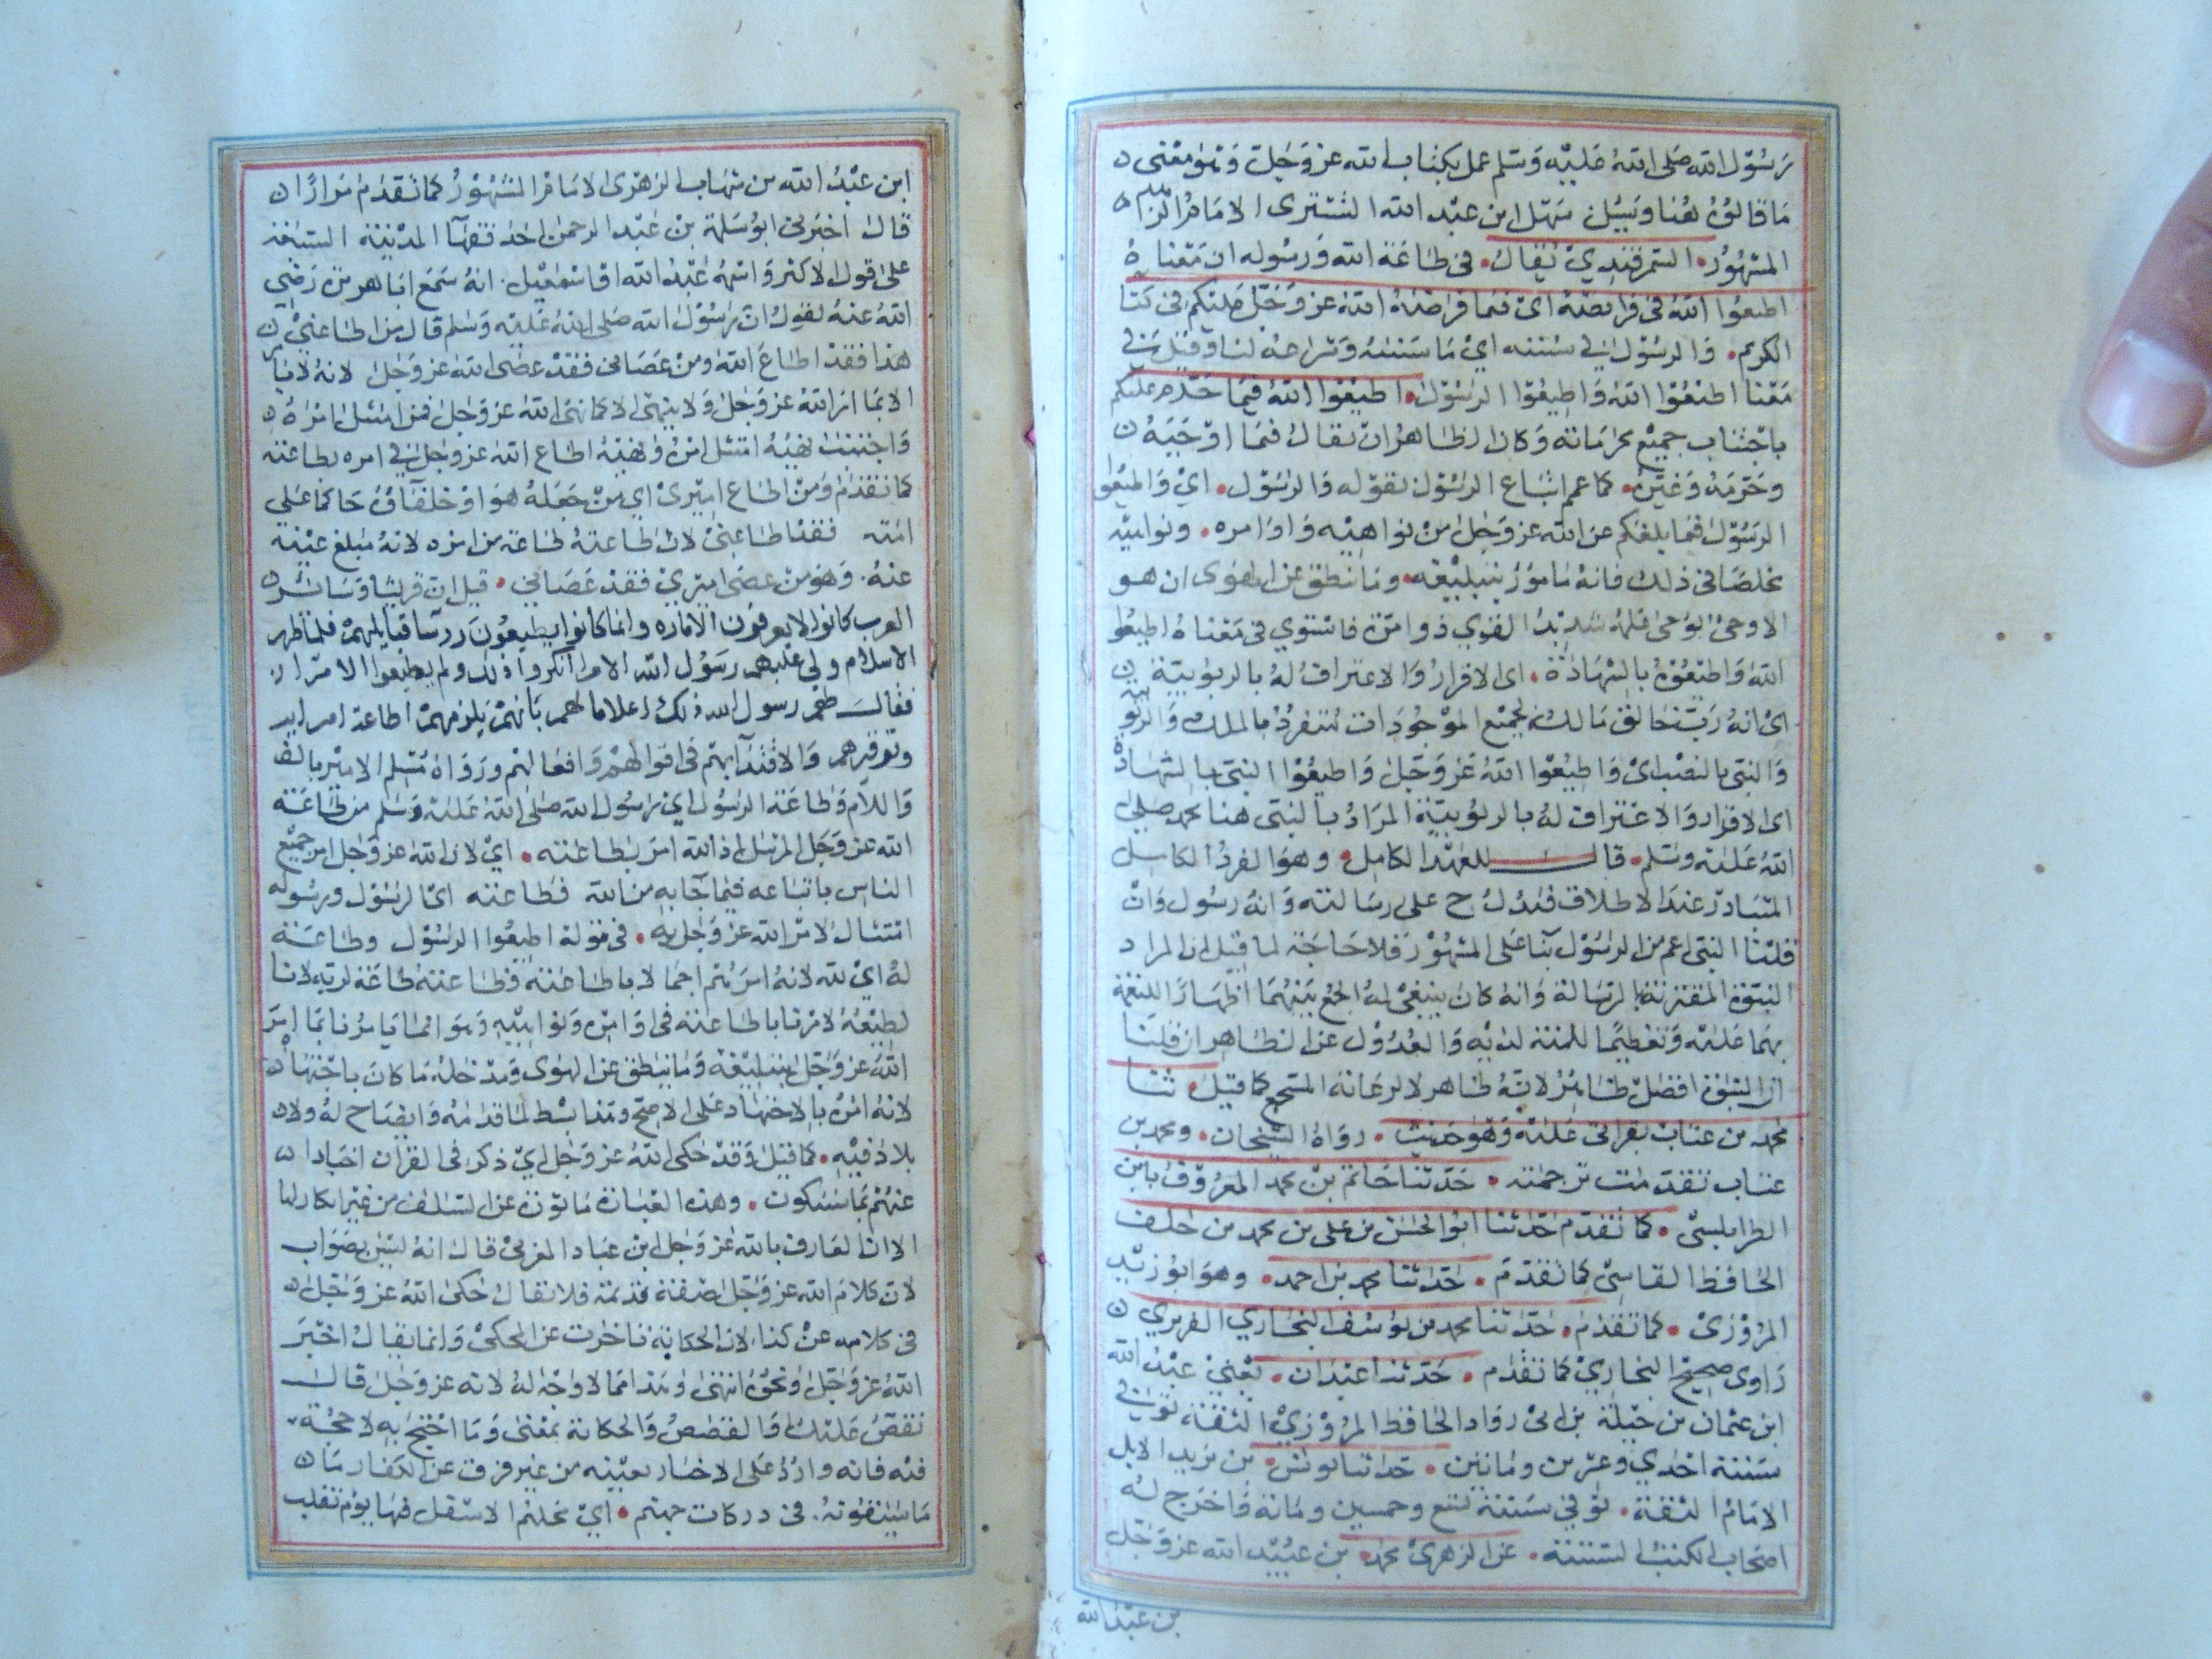 رسول الله صلى الله عليه وسلم عمل بكتاب الله عز وجل وهو معنى
ما قالوه هنا وسئل سهل ابن عبد الله التشترى الامام الزاهد
المشهور السمرقندي يقال في طاعة الله ورسوله ان معناه
اطيعوا الله في فرائضه اي فيما فرضه الله عز وجل عليكم في كتا
الكريم والرسول في سننه اي ما سننه وشرعه لنا وقيل في
معنا اطيعوا الله واطيعوا الرسول اطيعوا الله فيما حرم عليكم
باجتناب جميع محرماته وكان الظاهر ان يقال فيما اوجبه
وحرمه وغيره كما عمم اتباع الرسول بقوله والرسول اي واطيعوا
الرسول فيما بلغكم عن الله عز وجل من نواهيه واوامره ونواهيه
مخلصا في ذلك فانه مامور بتبليغه وما ينطق عن الهوى ان هو
الا وحي يوحى علمه شديد القوى ذو مرة فاستوى في معناه اطيعوا
الله واطيعوه بالشهادة اى الاقرار والاعتراف له بالربوبية
اى انه رب خالق مالك لجميع الموجودات متفرد بالملك والربوبية
والنبي بالنصب اى واطيعوا الله عز وجل واطيعوا النبي بالشهادة
اى الاقرار والاعتراف له بالربوبية المراد بالنبي هنا محمد صلى
الله عليه وسلم قال للعهد الكامل وهو الفرد الكامل
المتبادر عند الاطلاق فيدل ح على رسالته وانه رسول وان
قلنا النبي اعم من الرسول بنا على المشهور فلا حاجة لما قيل ان المراد
النبوة المقترنة بالرسالة وانه كان ينبغي له الجمع بينهما اظهارا للنعمة
بهما عليه وتعظيما للمنة لديه والعدول عن الظاهر ان قلنا
ان النبوة افضل ظاهر لانه ظاهر لا لرعاية السجع كما قيل ثنا
محمد بن عتاب بقراتي عليه وهو حديث رواه الشيخان ومحمد بن
عتاب تقدمت ترجمته حدثنا حاتم بن محمد المعروف بابن
الطرابلسي كما تقدم حدثنا ابو الحسن بن علي بن محمد بن خلف
الحافظ القابسي كما تقدم حدثنا محمد بن احمد وهو ابو زيد
المروزي كما تقدم حدثنا محمد بن يوسف البخاري الفربري
راوى صحيح البخاري كما تقدم حدثنا عبدان يعني عبد الله
ابن عثمان بن جبلة بن ابي رواد الحافظ المروزي الثقة توفي
سنة احدى وعشرين ومايتين حدثنا يونس بن يزيد الايلي
الامام الثقة توفي سنة تسع وخمسين ومائة واخرج له
اصحاب الكتب الستة عن الزهري محمد بن عبيد الله عز وجل
بن عبد الله
ابن عبد الله من شهاب الزهرى الامام المشهور كما تقدم مرارا
قال اخبرني ابو سلمة بن عبد الرحمن احد فقها المدينة السبعة
على قول الاكثر واسمه عبد الله او اسمعيل انه سمع ابا هريرة رضي
الله عنه يقول ان رسول الله صلى الله عليه وسلم قال من اطاعني
هذا فقد اطاع الله ومن عصاني فقد عصى الله عز وجل لانه لا يامر
الا بما امر الله عز وجل ولا ينهى الا كما نهى الله عز وجل فمن امتثل امره
واجتنب نهيه امتثل امره ونهيه اطاع الله عز وجل في امره بطاعته
كما تقدم ومن اطاع اميري اي من جعله هو او خلفاؤه حاكما على
امته فقد اطاعني لان طاعته طاعة من امره لانه مبلغ عنه
عنه وهو من عصى اميري فقد عصاني قيل ان قريشا وسائر
العرب كانوا لا يعرفون الاماره وانما كانوا يطيعون رؤساء قبايلهم فلما ظهر
الاسلام وولي عليهم رسول الله الامرا انكروا ذلك ولم يطيعوا الامرا
فقال لهم رسول الله ذلك اعلاما لهم بانهم يلزمهم اطاعة امرايه
وتوقيرهم والاقتدا بهم في اقوالهم وافعالهم ورواه مسلم الامير بالف
واللام وطاعة الرسول اي رسول الله صلى الله عليه وسلم من طاعة
الله عز وجل المرسل اذ الله امر بطاعته اي لان الله عز وجل امر جميع
الناس باتباعه فيما جا به من الله فطاعته اى الرسول ورسوله
امتثال لامر الله عز وجل به في قوله اطيعوا الرسول وطاعة
له اي لله لانه امرهم اجمالا باطاعته فطاعته طاعة لربه لانا
نطيعه لامرنا باطاعته في اوامره ونواهيه وهو انما يامرنا بما امر
الله عز وجل بتبليغه وما ينطق عن الهوى ويدخله ما كان باجتهاد
لانه امره بالاجتهاد على الاصح وهذا بسط لما قدمه وايضاح له ولا
بلاد فيه كما قيل وقد حكى الله عز وجل اي ذكر في القران اخبارا
عنهم بما سيكون وهذه العبارة ماثورة عن السلف من غير انكار لها
الا ان العارف بالله عز وجل ابن عباد المغربي قال انه ليس بصواب
لان كلام الله عز وجل صفة قديمة فلا يقال حكى الله عز وجل
في كلامه عن كذا لان الحكاية تاخرت عن المحكي وانما يقال اخبر
الله عز وجل ونحوه انتهى وهذا مما لا وجه له لانه عز وجل قال
نقص عليك والقصص والحكاية بمعنى وما احتج به لا حجة
فيه فانه وارد على الاخبار بعينه من غير فرق عن الكفار ما
ما سيقوله في دركات جهنم اي محلهم الاسفل فيها يوم تقلب